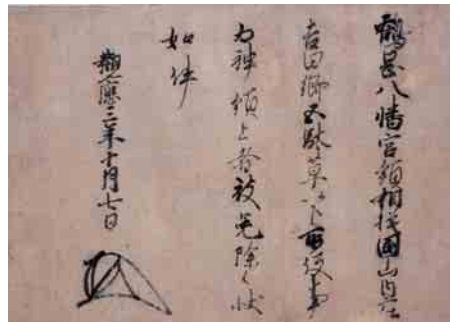 鶴岡八幡宮領相模国山内庄
吉田郷五駄草以下雑役事
為神領上者被免除之状
如件
暦応三年十月七日